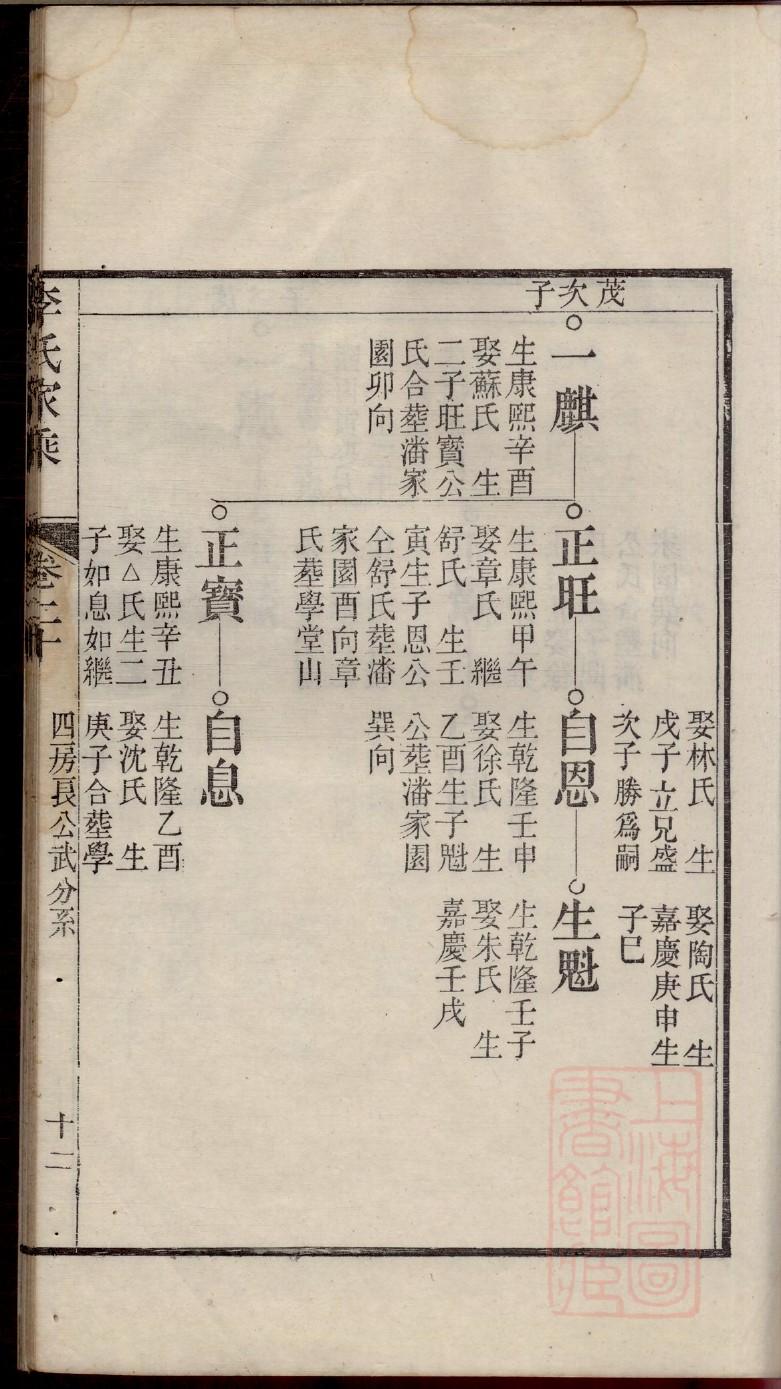 茂次子
娶林氏　生
戊子立兄盛
次子勝爲嗣
娶陶氏　生
嘉慶庚申生
子巳
一麒
生康熙辛酉
娶蘇氏　生
二子旺寶公
氏合塟潘家
園卯向
正旺
生康熙甲午
娶章氏　繼
舒氏　生壬
寅生子恩公
仝舒氏塟潘
家園酉向章
氏塟學堂山
自恩
生乾隆壬申
娶徐氏　生
乙酉生子魁
公塟潘家園
巽向
生魁
生乾隆壬子
娶朱氏　生
嘉慶壬戌
正寶
生康熙辛丑
娶△氏生二
子如息如繼
自息
生乾隆乙酉
娶沈氏　生
庚子合塟學
李氏家乘
卷二
四房長公武分系
十二
上海圖書館藏